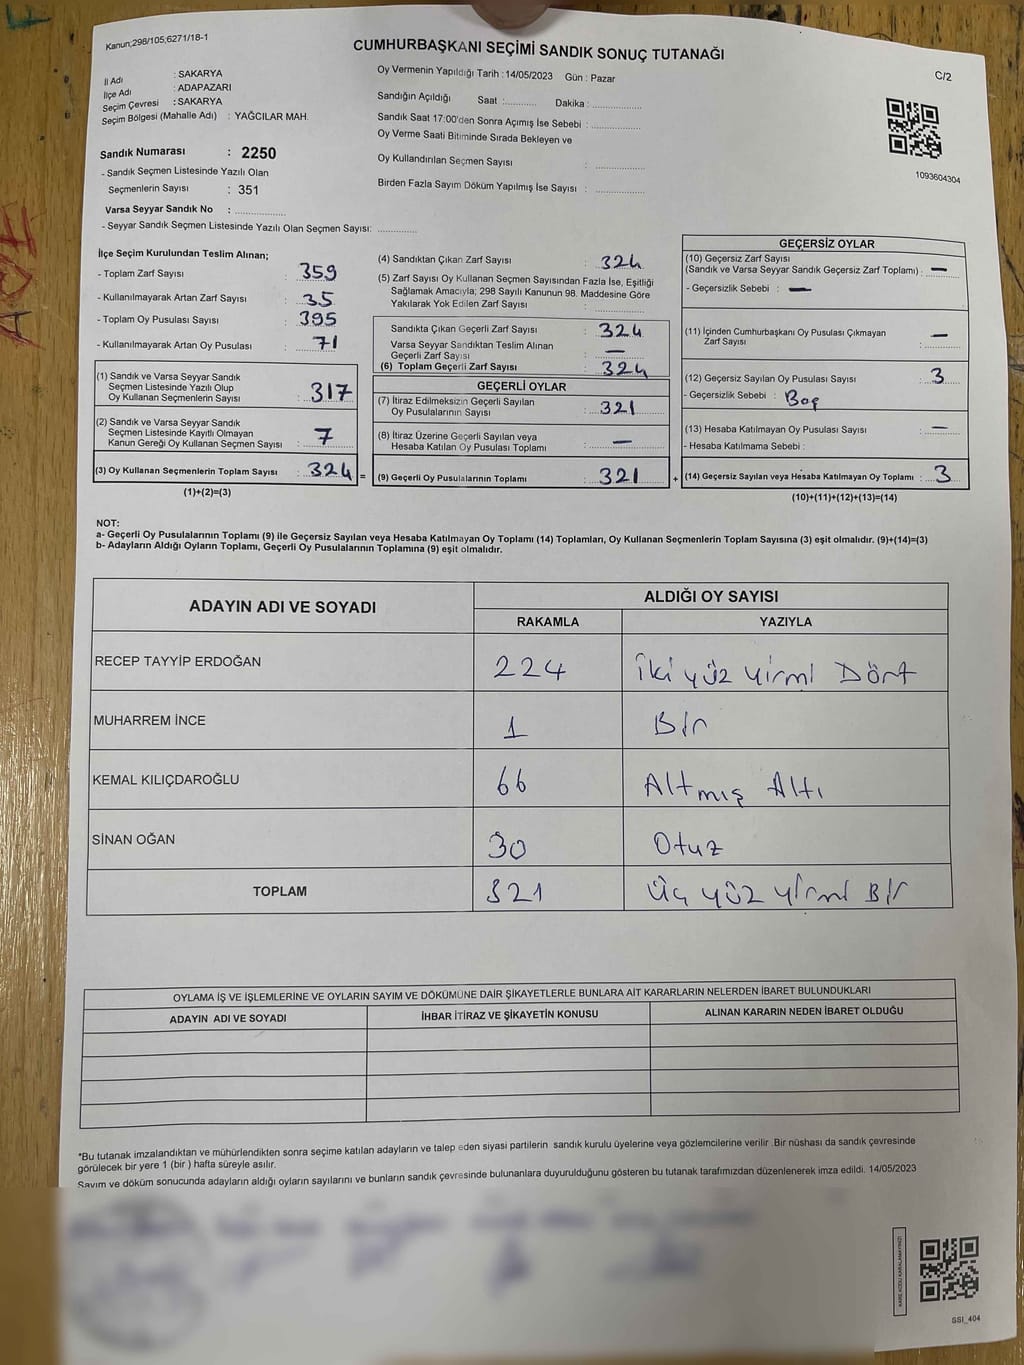 Kanun;298/105;6271/18-1
CUMHURBAŞKANI SEÇİMİ SANDIK SONUÇ TUTANAĞI
C/2
İl Adı : SAKARYA
İlçe Adı : ADAPAZARI
Seçim Çevresi : SAKARYA
Seçim Bölgesi (Mahalle Adı) : YAĞCILAR MAH.
Sandık Numarası : 2250
- Sandık Seçmen Listesinde Yazılı Olan
Seçmenlerin Sayısı : 351
Varsa Seyyar Sandık No : ..............
- Seyyar Sandık Seçmen Listesinde Yazılı Olan Seçmen Sayısı: ...........
Oy Vermenin Yapıldığı Tarih : 14/05/2023 Gün : Pazar
Sandığın Açıldığı Saat :........... Dakika : ..............
Sandık Saat 17:00'den Sonra Açımış İse Sebebi : ..............
Oy Verme Saati Bitiminde Sırada Bekleyen ve
Oy Kullandırılan Seçmen Sayısı : ..............
Birden Fazla Sayım Döküm Yapılmış İse Sayısı : ..............
1093604304
İlçe Seçim Kurulundan Teslim Alınan;
- Toplam Zarf Sayısı : 359
- Kullanılmayarak Artan Zarf Sayısı : 35
- Toplam Oy Pusulası Sayısı : 395
- Kullanılmayarak Artan Oy Pusulası : 71
(1) Sandık ve Varsa Seyyar Sandık
Seçmen Listesinde Yazılı Olup
Oy Kullanan Seçmenlerin Sayısı : 317
(2) Sandık ve Varsa Seyyar Sandık
Seçmen Listesinde Kayıtlı Olmayan
Kanun Gereği Oy Kullanan Seçmen Sayısı : 7
(3) Oy Kullanan Seçmenlerin Toplam Sayısı : 324 =
(1)+(2)=(3)
(4) Sandıktan Çıkan Zarf Sayısı : 324
(5) Zarf Sayısı Oy Kullanan Seçmen Sayısından Fazla İse, Eşitliği
Sağlamak Amacıyla; 298 Sayılı Kanunun 98. Maddesine Göre
Yakılarak Yok Edilen Zarf Sayısı : ..............
Sandıkta Çıkan Geçerli Zarf Sayısı : 324
Varsa Seyyar Sandıktan Teslim Alınan
Geçerli Zarf Sayısı : —
(6) Toplam Geçerli Zarf Sayısı : 324
GEÇERLİ OYLAR
(7) İtiraz Edilmeksizin Geçerli Sayılan
Oy Pusulalarının Sayısı : 321
(8) İtiraz Üzerine Geçerli Sayılan veya
Hesaba Katılan Oy Pusulası Toplamı : —
(9) Geçerli Oy Pusulalarının Toplamı : 321 +
GEÇERSİZ OYLAR
(10) Geçersiz Zarf Sayısı
(Sandık ve Varsa Seyyar Sandık Geçersiz Zarf Toplamı) : —
- Geçersizlik Sebebi : —
(11) İçinden Cumhurbaşkanı Oy Pusulası Çıkmayan
Zarf Sayısı : —
(12) Geçersiz Sayılan Oy Pusulası Sayısı : 3
- Geçersizlik Sebebi : Boş
(13) Hesaba Katılmayan Oy Pusulası Sayısı : —
- Hesaba Katılmama Sebebi :
(14) Geçersiz Sayılan veya Hesaba Katılmayan Oy Toplamı : 3
(10)+(11)+(12)+(13)=(14)
NOT:
a- Geçerli Oy Pusulalarının Toplamı (9) ile Geçersiz Sayılan veya Hesaba Katılmayan Oy Toplamı (14) Toplamları, Oy Kullanan Seçmenlerin Toplam Sayısına (3) eşit olmalıdır. (9)+(14)=(3)
b- Adayların Aldığı Oyların Toplamı, Geçerli Oy Pusulalarının Toplamına (9) eşit olmalıdır.
ADAYIN ADI VE SOYADI ALDIĞI OY SAYISI
RAKAMLA YAZIYLA
RECEP TAYYİP ERDOĞAN 224 İki yüz yirmi Dört
MUHARREM İNCE 1 Bir
KEMAL KILIÇDAROĞLU 66 Altmış Altı
SİNAN OĞAN 30 Otuz
TOPLAM 321 Üç yüz yirmi Bir
OYLAMA İŞ VE İŞLEMLERİNE VE OYLARIN SAYIM VE DÖKÜMÜNE DAİR ŞİKAYETLERLE BUNLARA AİT KARARLARIN NELERDEN İBARET BULUNDUKLARI
ADAYIN ADI VE SOYADI İHBAR İTİRAZ VE ŞİKAYETİN KONUSU ALINAN KARARIN NEDEN İBARET OLDUĞU
*Bu tutanak imzalandıktan ve mühürlendikten sonra seçime katılan adayların ve talep eden siyasi partilerin sandık kurulu üyelerine veya gözlemcilerine verilir .Bir nüshası da sandık çevresinde
görülecek bir yere 1 (bir ) hafta süreyle asılır.
Sayım ve döküm sonucunda adayların aldığı oyların sayılarını ve bunların sandık çevresinde bulunanlara duyurulduğunu gösteren bu tutanak tarafımızdan düzenlenerek imza edildi. 14/05/2023
KARE KODU KARALAMAYINIZ!
SSI_404